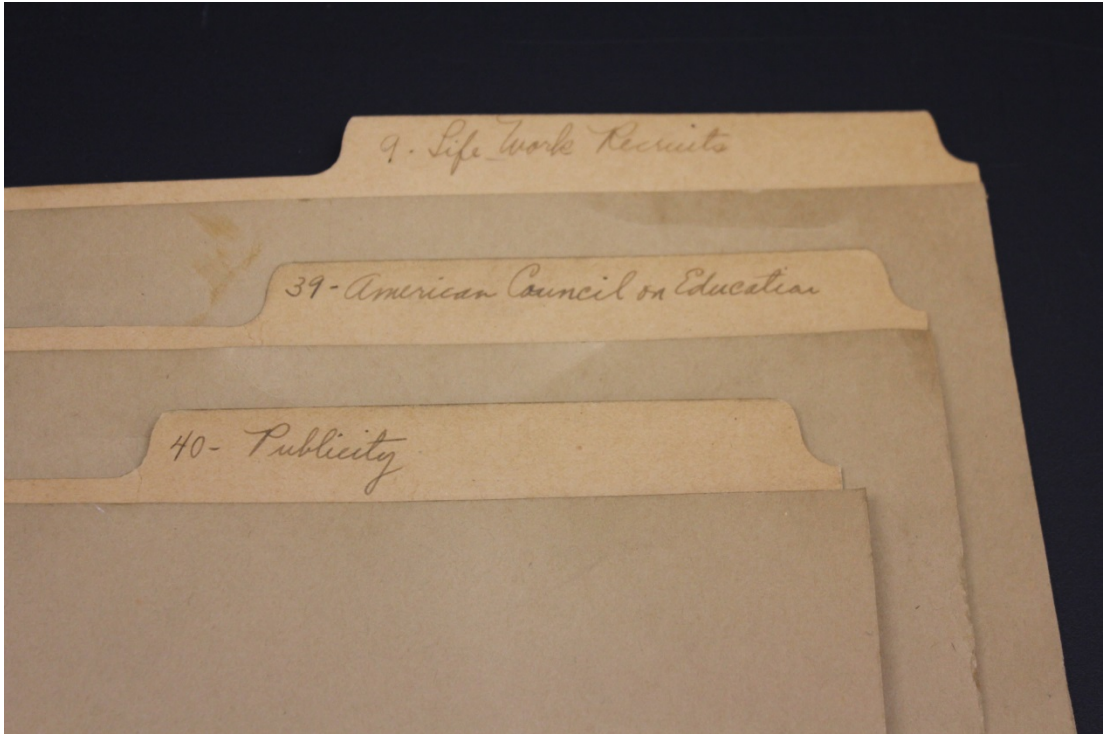 9. Life Work Recruits
39- American Council on Education
40- Publicity